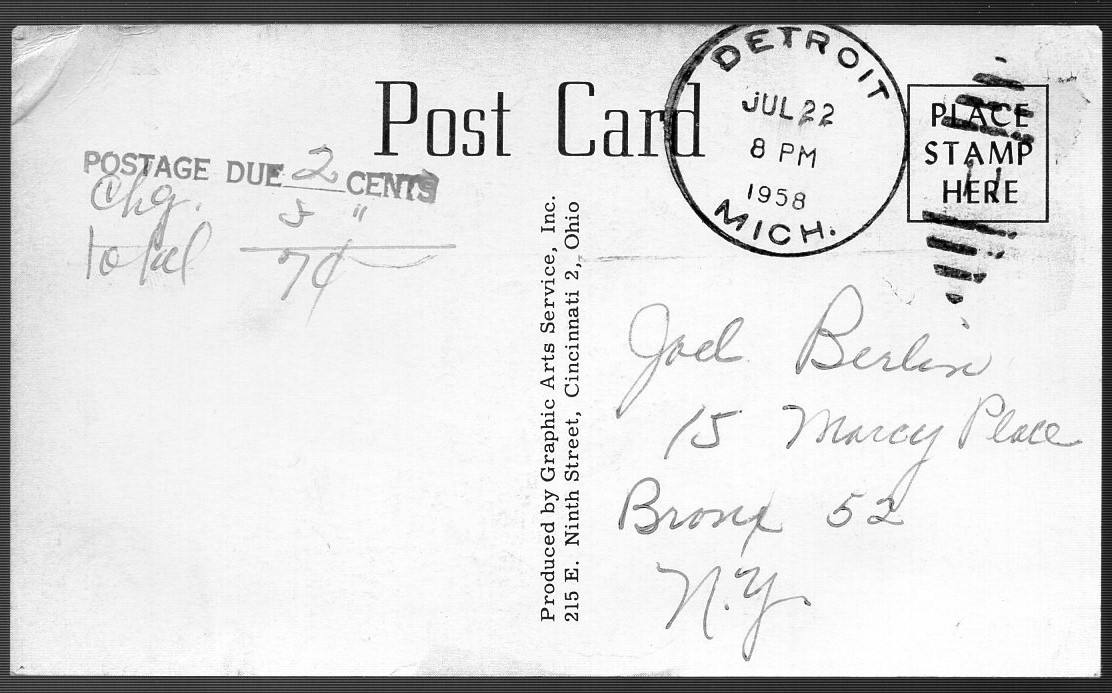 Post Card
DETROIT
JUL 22
8 PM
1958
MICH.
PLACE
STAMP
HERE
POSTAGE DUE 2 CENTS
chg. 5 "
total 7¢
Produced by Graphic Arts Service, Inc.
215 E. Ninth Street, Cincinnati 2, Ohio
Joel Berlin
15 Marcy Place
Bronx 52
N.Y.